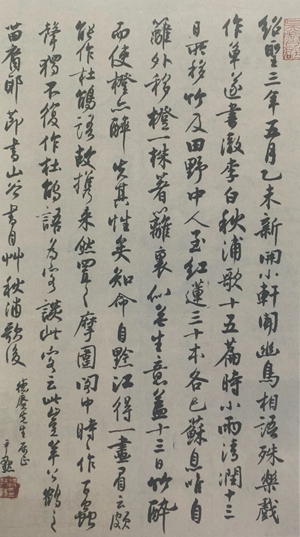 紹聖三年五月乙未新開小軒聞幽鳥相語殊樂戲
作草遂書徹李白秋浦歌十五篇時小雨清潤十三
日所移竹及田野中人致紅蓮三十本各已蘇息唯自
籬外移橙一株著籬裏似無生意蓋十三日竹醉
而使橙亦醉失其性矣知命自黔江得一畫眉云頗
能作杜鵑語故携來然置之摩圍閣中時作百蟲
聲獨不復作杜鵑語為客談此客云此豈羊公鶴之
苗裔耶 節書山谷書自草秋浦歌後
先生 正
尹默